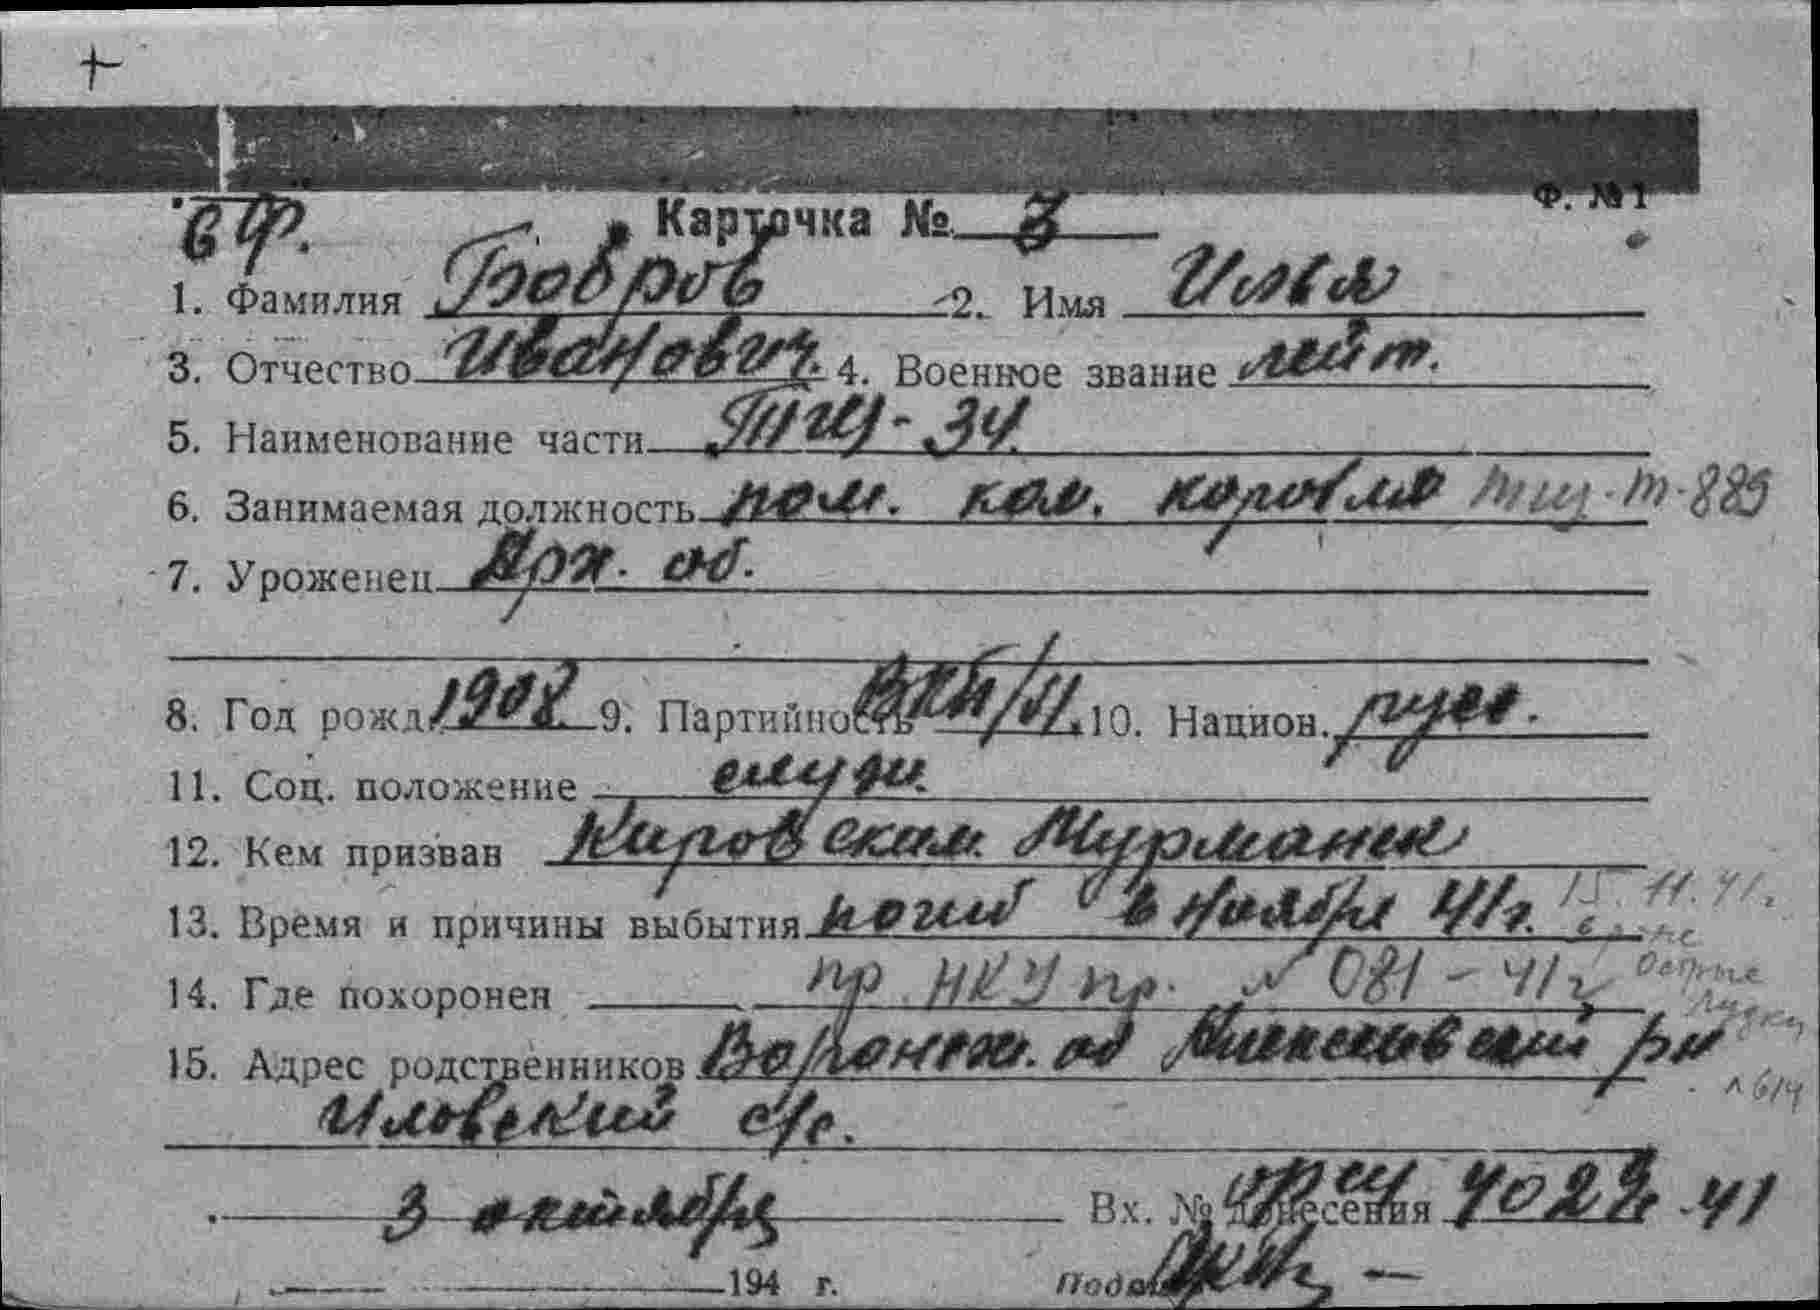 Ф. № 1
СФ. Карточка № 3
1. Фамилия Бобров 2. Имя Илья
3. Отчество Иванович. 4. Военное звание лейт.
5. Наименование части ТЩ-34.
6. Занимаемая должность пом. ком. корабля тщ. т-889
7. Уроженец Арх. об.
8. Год рожд. 1908 9. Партийность ВКП/б/. 10. Национ. русс.
11. Соц. положение служ.
12. Кем призван Кировским Мурманск
13. Время и причины выбытия погиб в ноябре 41г. 15.11.41г.
14. Где похоронен пр. НКУ пр. № 081-41г
15. Адрес родственников Воронеж. об Алексеевский рн
Иловский с/с.
3 октября Вх. № донесения 4023 41
194 г.